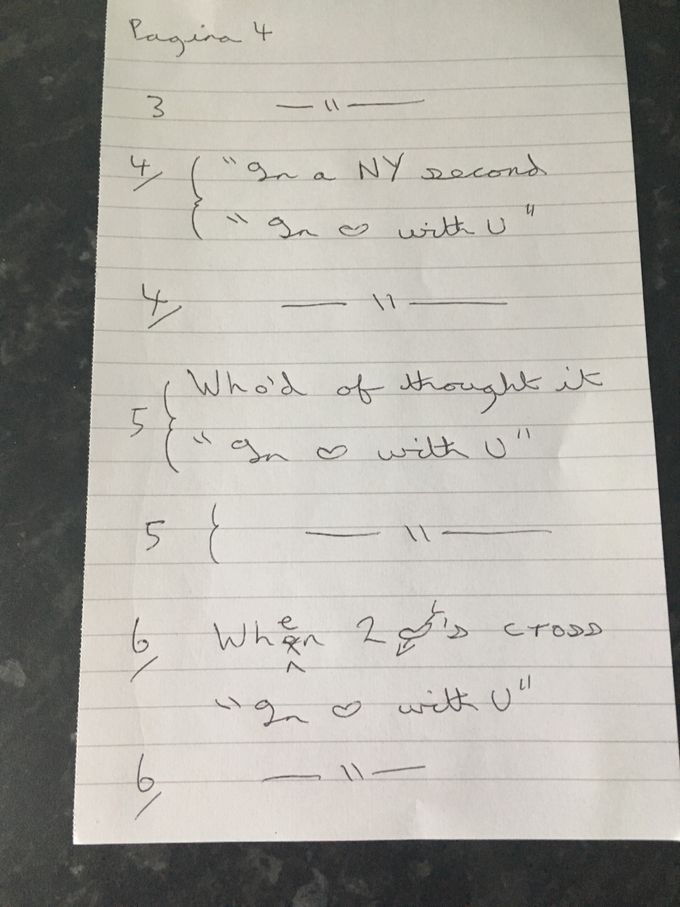 Pagina 4
3 — 11 —
4/ { "In a NY second
"In ♡ with U"
4/ — 11 —
5 { Who'd of thought it
"In ♡ with U"
5 { — 11 —
6/ When 2 's cross
"In ♡ with U"
6/ — 11 —